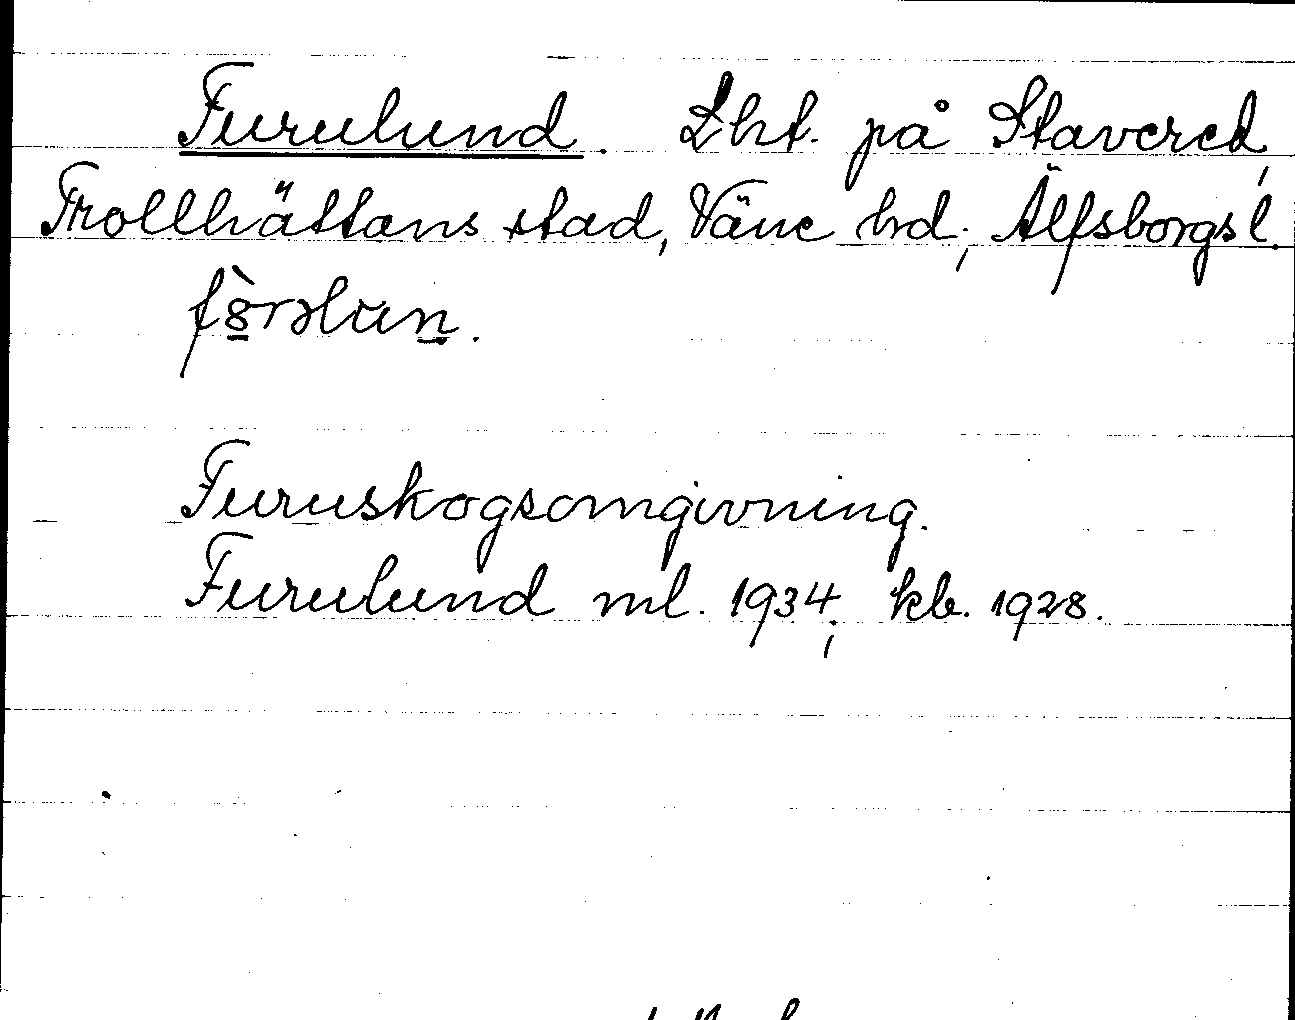 Furulund. Lht. på Stavered,
Trollhättans stad, Väne hd; Älfsborgs l.
Furuskogsomgivning.
Furulund ml. 1934; kb. 1928.